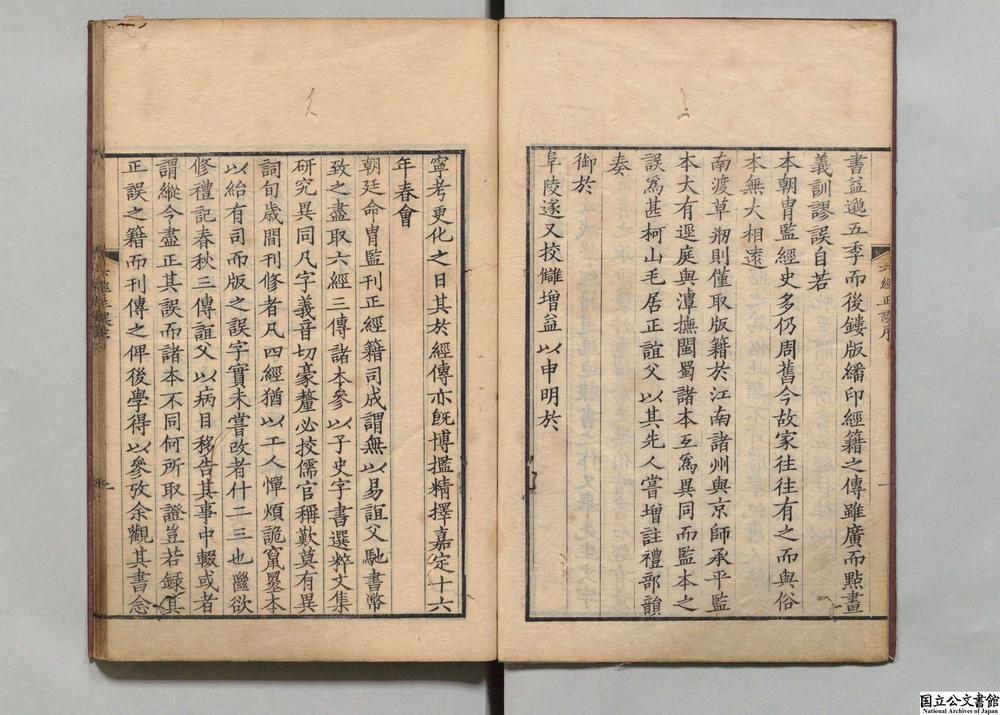 書益遁五季而後鏤版繙印經籍之傳雖廣而點畫
義訓謬誤自若
本朝胄監經史多仍周舊今故家往往有之而與俗
本無大相遠
南渡草刱則僅取版籍於江南諸州與京師承平監
本大有逕庭與潭撫閩蜀諸本互爲異同而監本之
誤爲甚柯山毛居正誼父以其先人嘗增註禮部韻
奏
御於
阜陵遂又挍讎增益以申明於
六經正誤序
寧考更化之日其於經傳亦旣博攬精擇嘉定十六
年春會
朝廷命胄監刊正經籍司成謂無以易誼父馳書幣
致之盡取六經三傳諸本參以子史字書選粹文集
研究異同凡字義音切豪釐必挍儒官稱歎莫有異
詞旬歲間刊修者凡四經猶以工人憚煩詭竄墨本
以紿有司而版之誤字實未嘗改者什二三也繼欲
修禮記春秋三傳誼父以病目移告其事中輟或者
謂縱今盡正其誤而諸本不同何所取證豈若錄其
正誤之籍而刊傳之俾後學得以參攷余觀其書念
国立公文書館
National Archives of Japan